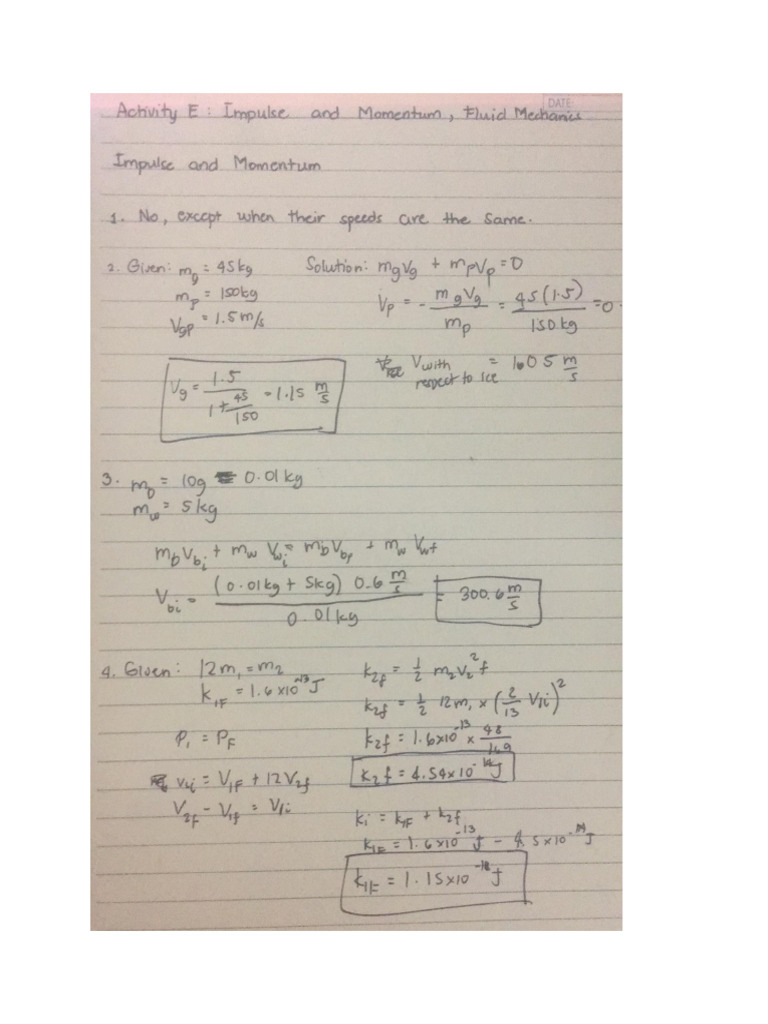 DATE:
Activity E : Impulse and Momentum, Fluid Mechanics
Impulse and Momentum
1. No, except when their speeds are the same.
2. Given: m_g = 45kg
m_p = 150kg
V_gp = 1.5 m/s
V_g = 1.5 / (1 + 45/150) = 1.15 m/s
Solution: m_g V_g + m_p V_p = 0
V_p = - m_g V_g / m_p = 45(1.5) / 150 kg = 0.
V with respect to Ice = 1.05 m/s
3. m_b = 10g = 0.01 kg
m_w = 5 kg
m_b V_bi + m_w V_wi = m_b V_bf + m_w V_wf
V_bi = (0.01kg + 5kg) 0.6 m/s / 0.01 kg = 300.6 m/s
4. Given: 12m_1 = m_2
K_1F = 1.6x10^-13 J
P_i = P_F
V_1i = V_1F + 12V_2f
V_2f - V_1f = V_1i
K_2f = 1/2 m_2 V_2^2 f
K_2f = 1/2 12m_1 x (2/13 V_1i)^2
K_2f = 1.6x10^-13 x 48/169
K_2f = 4.54x10^-14 J
K_i = K_1F + K_2f
K_1F = 1.6x10^-13 J - 4.5x10^-14 J
K_1F = 1.15x10 J